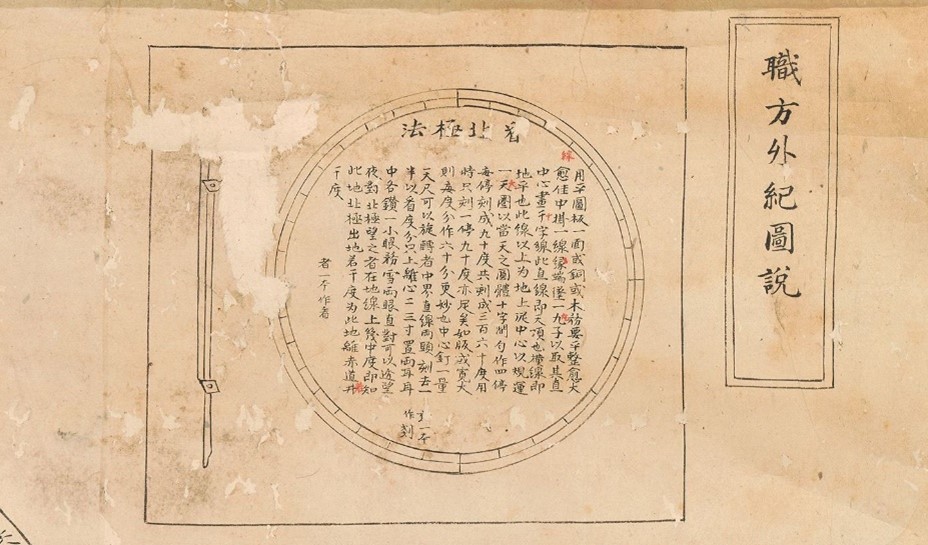 職方外紀圖說
看北極法
用平圓板一面或銅或木務要平整愈大
愈佳中掛一線緣端墜一九子以取其直
中心畫千字線此直線即天頂也橫線即
地平也此線以上為地上從中心以規運
一天圈以當天之圓體十字間勻作四停
每停刻成九十度共刻成三百六十度用
時只刻一停九十度亦足矣如版或寬大
則每度分作六十分更妙也中心釘一量
天尺可以旋轉者中界直線兩頭刻去一
半以看度分只上離心二三寸置兩耳耳
中各鑽一小眼務雪兩眼直對可以透望
夜對北極望之者在地線上幾中度即知
此地北極出地若干度為此地離赤道井
干度
者一本作看
一本
作刻
線
十